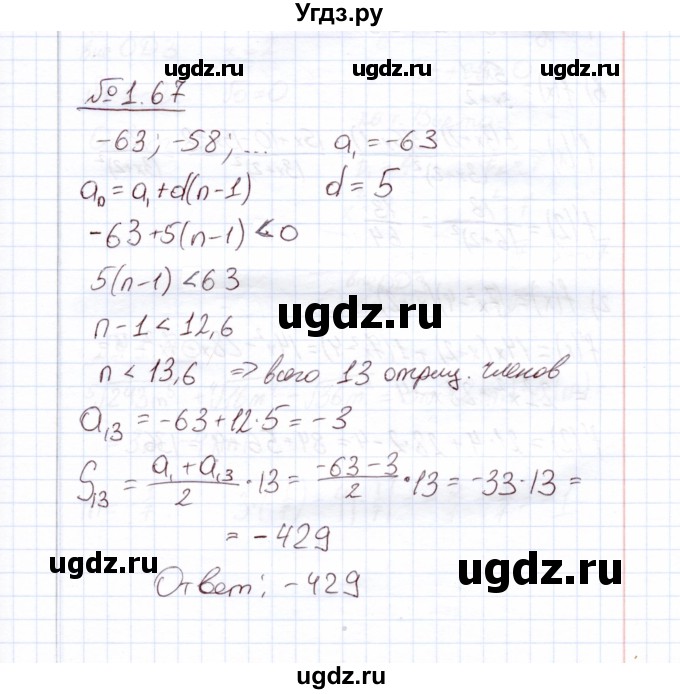 Угдз.ру
ugdz.ru ugdz.ru
№1.67
-63; -58; ... a₁ = -63
aₙ = a₁ + d(n-1) d = 5
-63 + 5(n-1) < 0
5(n-1) < 63
ugdz.ru
n - 1 < 12,6
n < 13,6 => всего 13 отриц. членов
a₁₃ = -63 + 12·5 = -3
S₁₃ = (a₁ + a₁₃)/2 · 13 = (-63 - 3)/2 · 13 = -33·13 =
= -429
ugdz.ru ugdz.ru
Ответ: -429
ugdz.ru ugdz.ru